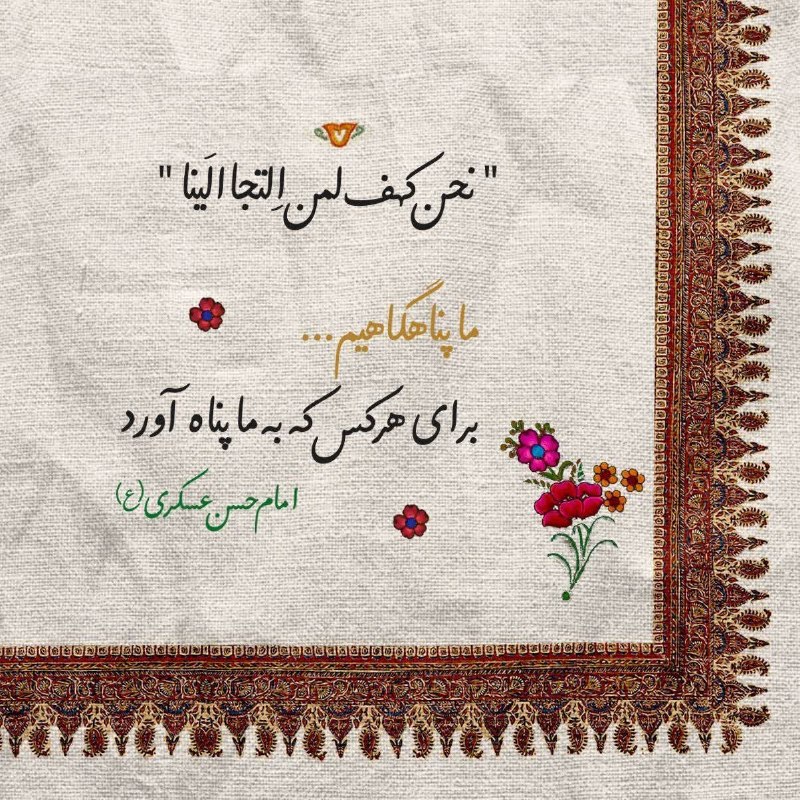 " نحن کهف لمن اِلتجا الَینا "
ما پناهگاهیم ...
برای هرکس که به ما پناه آورد
امام حسن عسکری (ع)